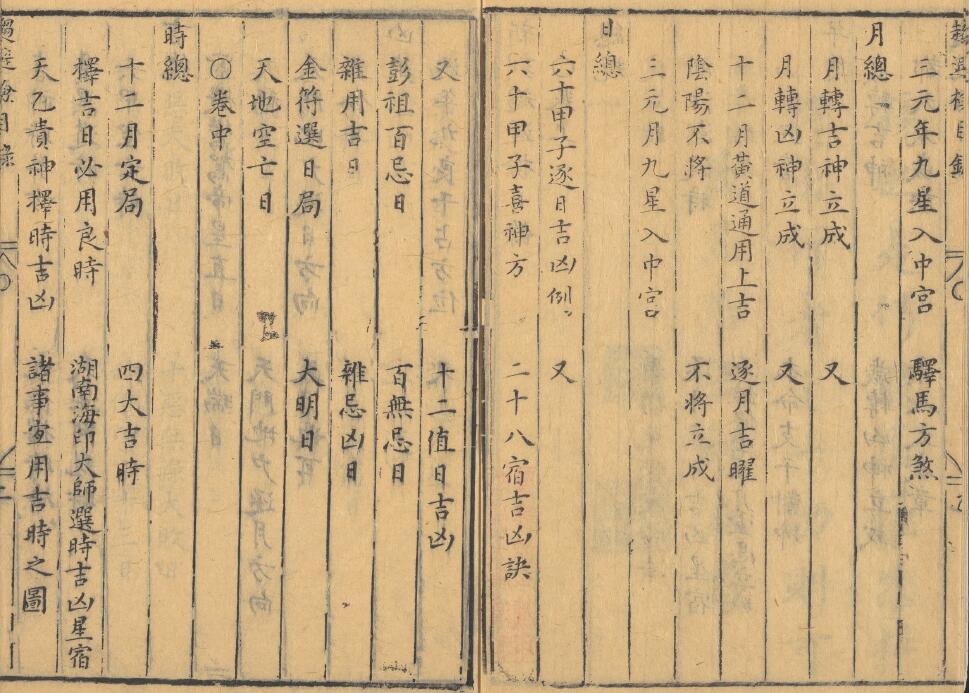 三元年九星入中宮 驛馬方煞
月總
月轉吉神立成 又
月轉凶神立成 又
十二月黃道通用上吉 逐月吉曜
陰陽不將 不將立成
三元月九星入中宮
日總
六十甲子逐日吉凶例 又
六十甲子喜神方 二十八宿吉凶訣
又 十二值日吉凶
彭祖百忌日 百無忌日
雜用吉日 雜忌凶日
金符選日局 大明日
天地空亡日
〇卷中
時總
十二月定局 四大吉時
擇吉日必用良時 湖南海印大師選時吉凶星宿
天乙貴神擇時吉凶 諸事宜用吉時之圖